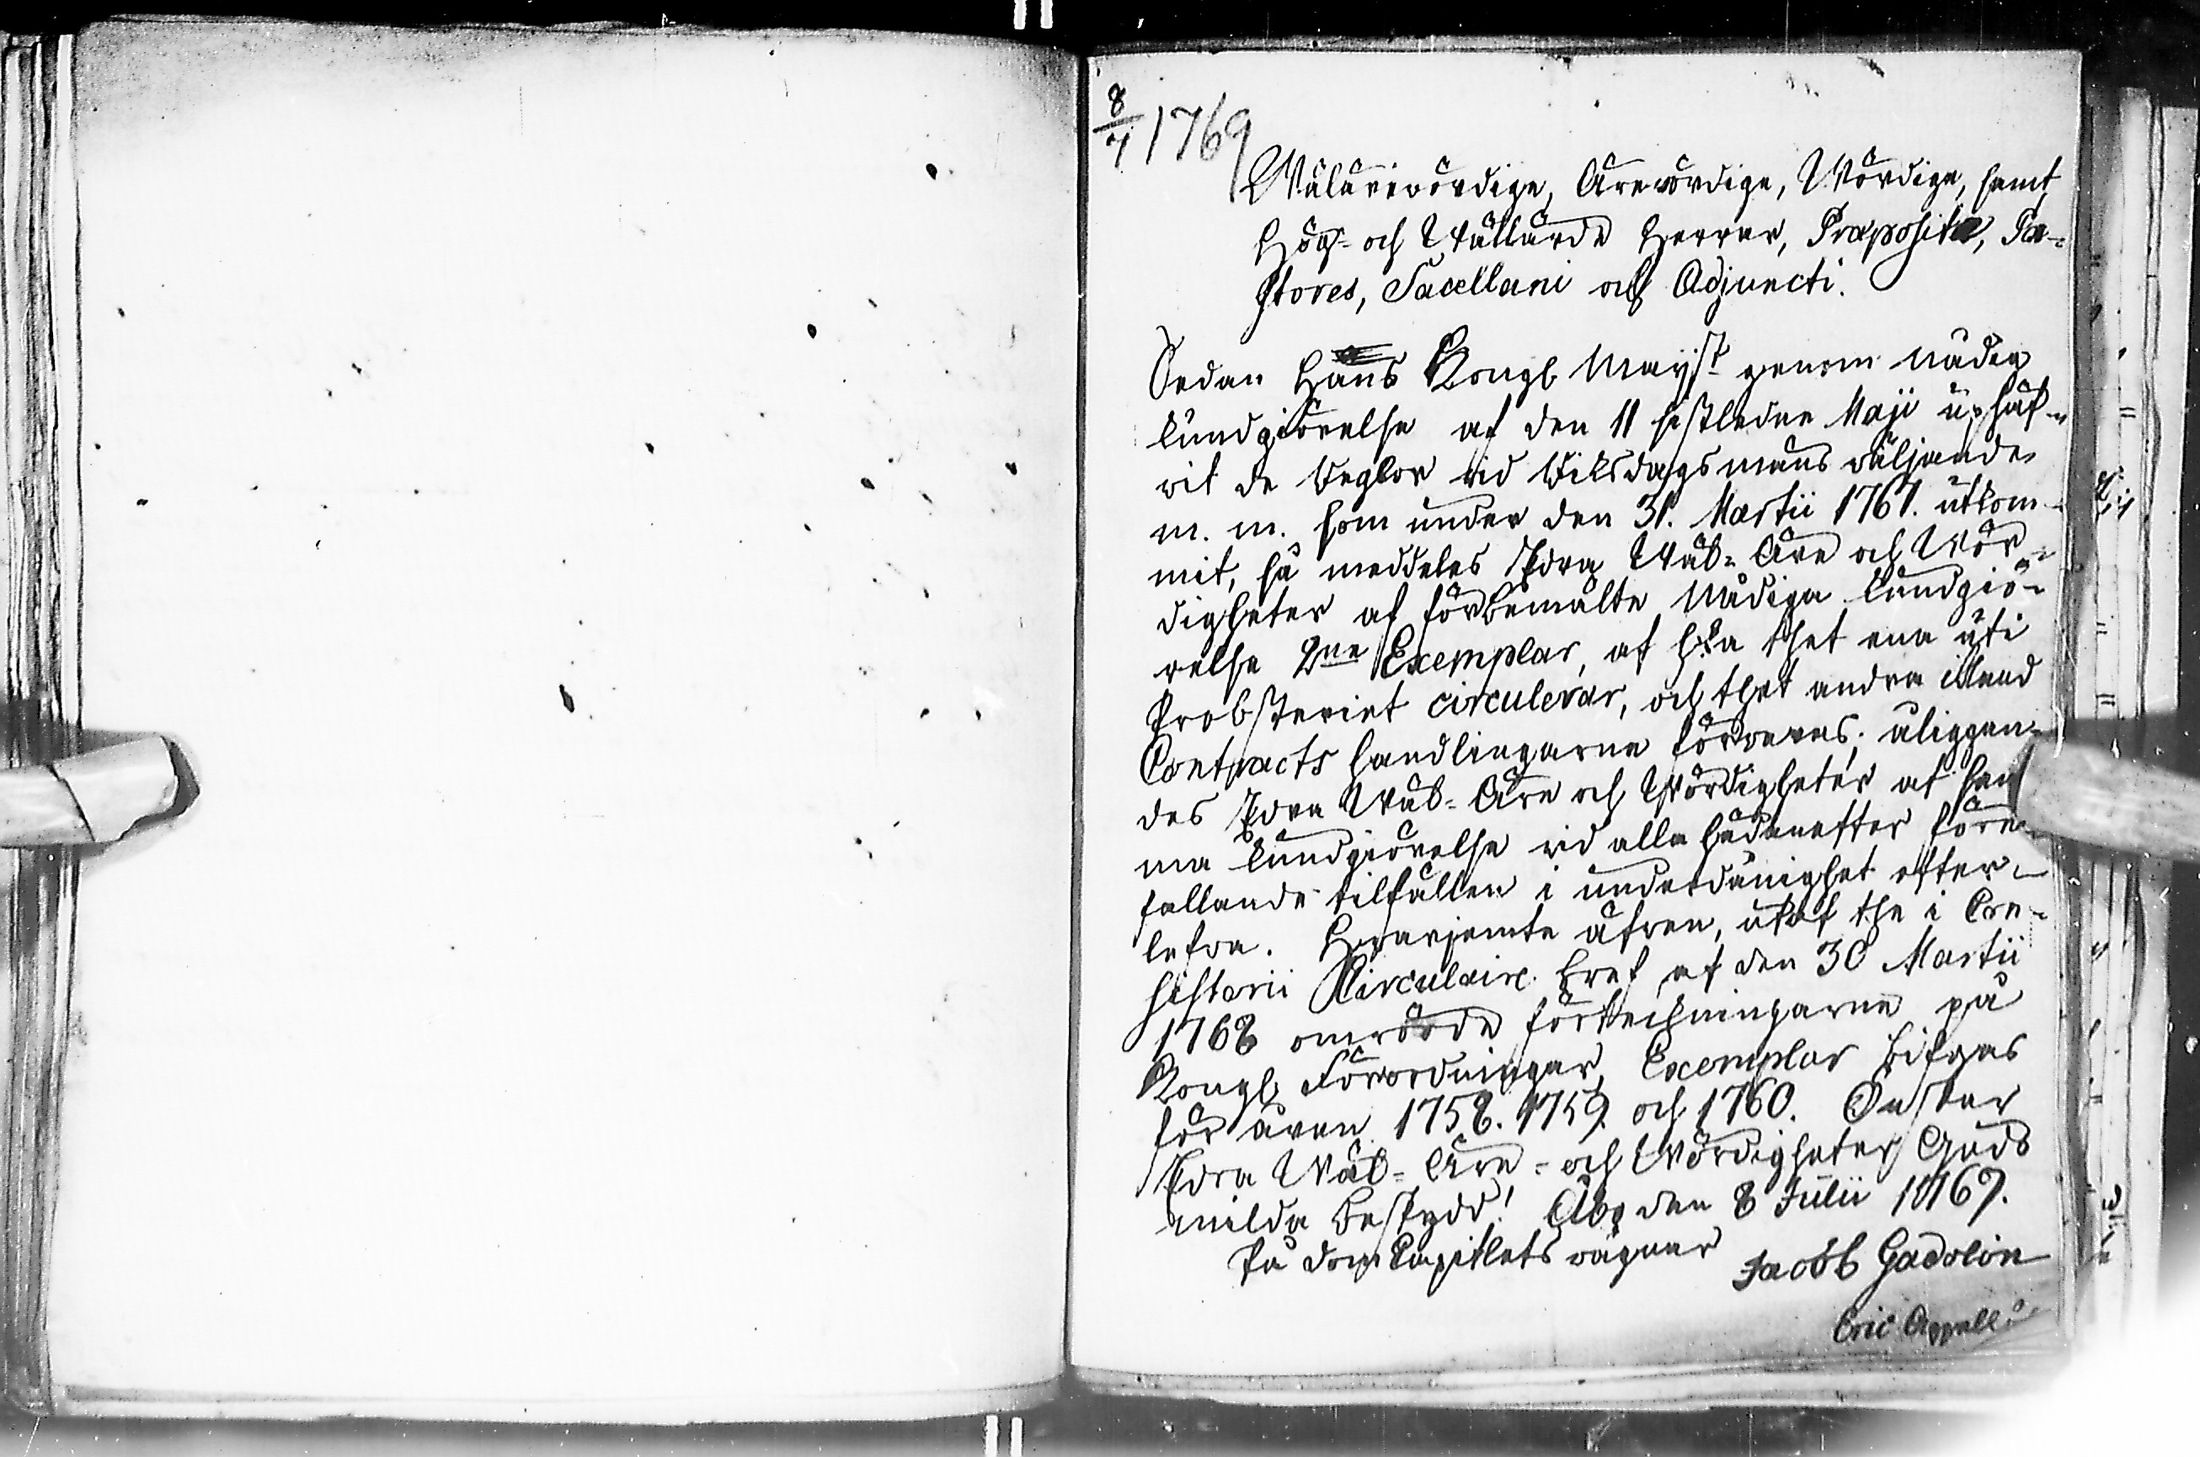 8/7 1769
Wälärevördige, Ärevördige, Wördige, samt
Hög- och Wällärde Herrar, Præpositi, Pa-
stores, Sacellani och Adjuncti.
Sedan Hans Kongl Mayst genom nådig
kundgiörelse af den 11 sistledne Maji uphäf-
vit de Reglor vid Riksdagsmans väljande
m. m. som under den 31. Martii 1767. utkom-
mit, så meddeles Edra Wäl- Äre och Wör-
digheter af förbemälte Nådiga kundgiö-
relse 2ne Exemplar, af hka thet ena uti
Probsteriet circulerar, och thet andra ibland
Contracts handlingarne förvaras; åliggan-
des Edra Wäl- Äre och Wördigheter at sam
ma kundgiörelse vid alla hädanefter före-
fallande tilfällen i underdånighet efter-
lefva. Hvarjemte äfven, utaf the i Con-
sistorii Circulaire bref af den 30 Martii
1768 omrörde förtekningarne på
Kongl. Förordningar, Exemplar bifogas
för åren 1758. 1759. och 1760. Önskar
Edra Wäl- Äre- och Wördigheter Guds
milda beskydd! Åbo den 8 Julii 1769.
På DomCapitlets vägnar
Jacob Gadolin
Eric